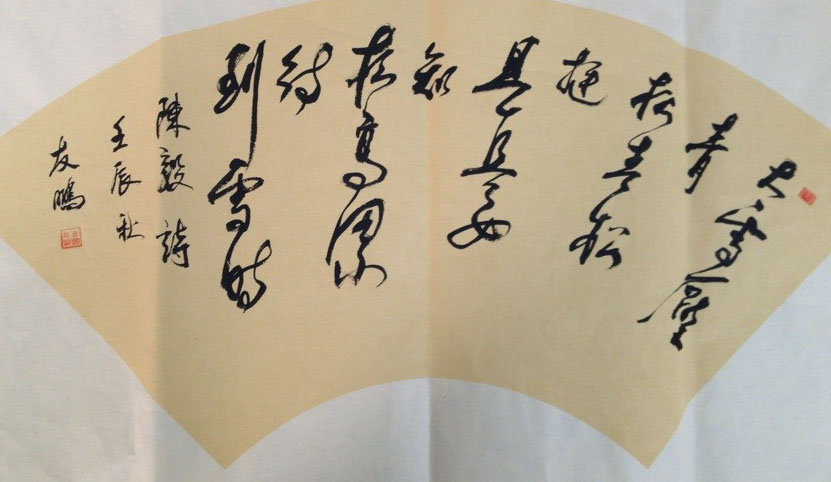 大雪壓
青
松青松
挺
且直要
知
松高潔
待
到雪時
陳毅詩
壬辰秋
友鵬